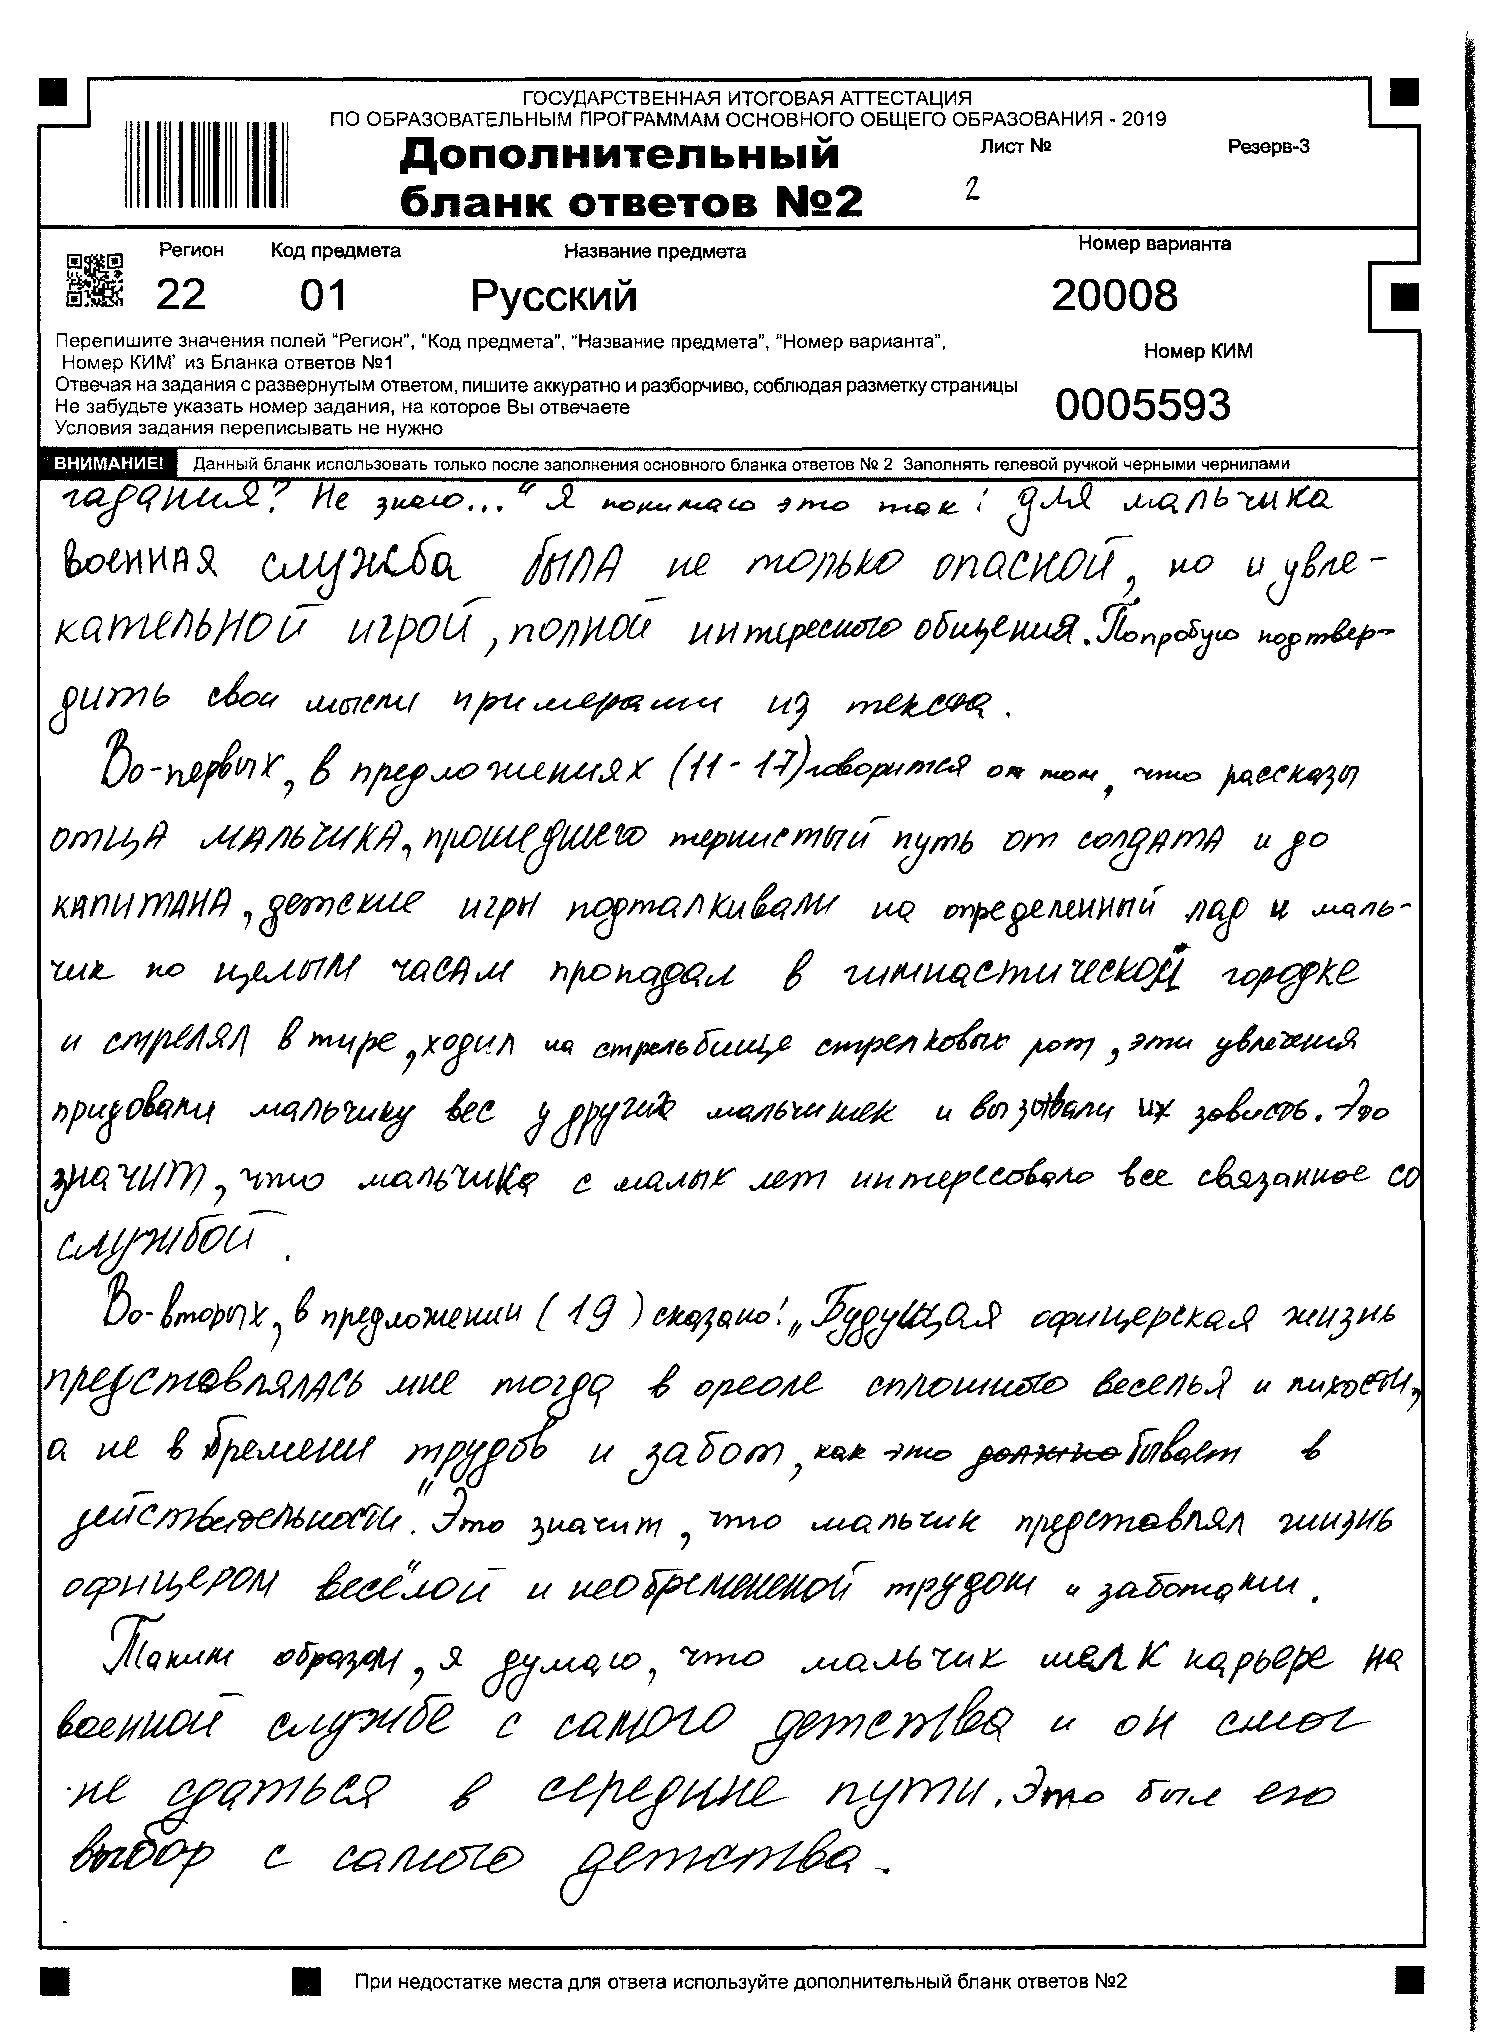 ГОСУДАРСТВЕННАЯ ИТОГОВАЯ АТТЕСТАЦИЯ
ПО ОБРАЗОВАТЕЛЬНЫМ ПРОГРАММАМ ОСНОВНОГО ОБЩЕГО ОБРАЗОВАНИЯ - 2019
Дополнительный
бланк ответов №2
Лист №
2
Резерв-3
Регион Код предмета Название предмета Номер варианта
22 01 Русский 20008
Перепишите значения полей "Регион", "Код предмета", "Название предмета", "Номер варианта",
Номер КИМ" из Бланка ответов №1
Номер КИМ
Отвечая на задания с развернутым ответом, пишите аккуратно и разборчиво, соблюдая разметку страницы
Не забудьте указать номер задания, на которое Вы отвечаете
0005593
Условия задания переписывать не нужно
ВНИМАНИЕ! Данный бланк использовать только после заполнения основного бланка ответов № 2 Заполнять гелевой ручкой черными чернилами
гадания? Не знаю..." Я понимаю это так: для мальчика
военная служба была не только опасной, но и увле-
кательной игрой, полной интересного общения. Попробую подтвер-
дить свои мысли примерами из текста.
Во-первых, в предложениях (11-17) говорится от том, что рассказы
отца мальчика, прошедшего тернистый путь от солдата и до
капитана, детские игры подталкивали на определенный лад и маль-
чик по целым часам пропадал в гимнастической городке
и стрелял в тире, ходил на стрельбище стрелковых рот, эти увлечения
придовали мальчику вес у других мальчишек и вызывали их зависть. Это
значит, что мальчика с малых лет интерессовало все связанное со
службой.
Во-вторых, в предложении (19) сказано: „Будущая офицерская жизнь
представлялась мне тогда в ореоле сплошного веселья и лихости,
а не в бремени трудов и забот, как это должно бывает в
действительности". Это значит, что мальчик представлял жизнь
офицером весёлой и необремененой трудом и заботами.
Таким образом, я думаю, что мальчик шел к карьере на
военной службе с самого детства и он смог
не сдаться в середине пути. Это был его
выбор с самого детства.
При недостатке места для ответа используйте дополнительный бланк ответов №2